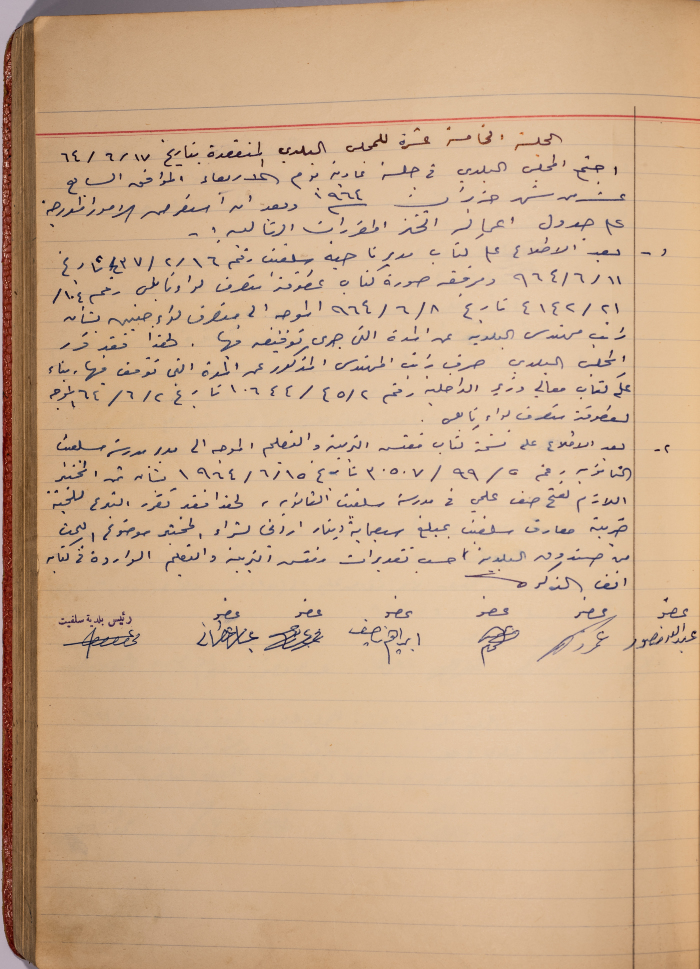 الجلسة الخامسة عشرة للمجلس البلدي المنعقدة بتاريخ ١٧/٦/٦٤
اجتمع المجلس البلدي في جلسة عادية يوم الاربعاء الموافق السابع
عشر من شهر حزيران سنة ١٩٦٤ وبعد ان استعرض الامور المدرجة
على جدول اعماله اتخذ المقررات التالية :-
١- بعد الاطلاع على كتاب مدير ناحية سلفيت رقم ١٦/٢/ تاريخ
١١/٦/٩٦٤ ومرفقه صورة كتاب عطوفة متصرف لواء نابلس رقم
٢١/٤١٤٢ تاريخ ٨/٦/٩٦٤ الموجه الى متصرف لواء جنين بشأن
راتب مهندس البلدية عن المدة التي جرى توقيفه فيها . لهذا فقد قرر
المجلس البلدي صرف راتب المهندس المذكور عن المدة التي توقف فيها بناء
على كتاب معالي وزير الداخلية رقم ٤٥/٢/١٠٦٤٤ تاريخ ٢/٦/٦٤ الموجه
لعطوفة متصرف لواء نابلس .
٢- بعد الاطلاع على نسخة كتاب مفتش التربية والتعليم الموجه الى مدير مدرسة سلفيت
الثانوية رقم ٥/٩٩/٣٠٥٠٧ تاريخ ١٥/٦/١٩٦٤ بشأن ثمن المختبر
اللازم لفتح صف علمي في مدرسة سلفيت الثانوية ، لهذا فقد تقرر التبرع للجنة
ضريبة معارف سلفيت بمبلغ سبعماية دينار اردني لشراء المختبر موضوع البحث
من صندوق البلدية حسب تقديرات مفتش التربية والتعليم الواردة في كتابه
انف الذكر
عضو عضو عضو عضو عضو عضو رئيس بلدية سلفيت
عبدالله منصور ابراهيم نصيف